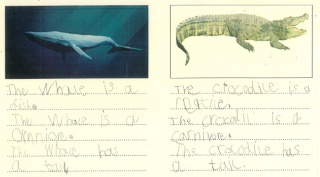 The Whale is a
fish.
The Whale is a
Omnivore.
The Whale has
a tail
The crocodile is a
reptile.
The crocodil is a
carnivore.
The crocodile has
a tail.